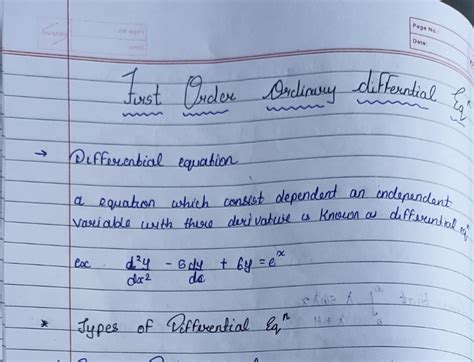 Page No.
Date:
First Order Ordinary differntial Eq
→ Differential equation
a equation which consist dependent an independent
variable with there derivative is known as differential eqⁿ
ex d²y/dx² - 5 dy/dx + 6y = eˣ
* Types of Differential Eqⁿ